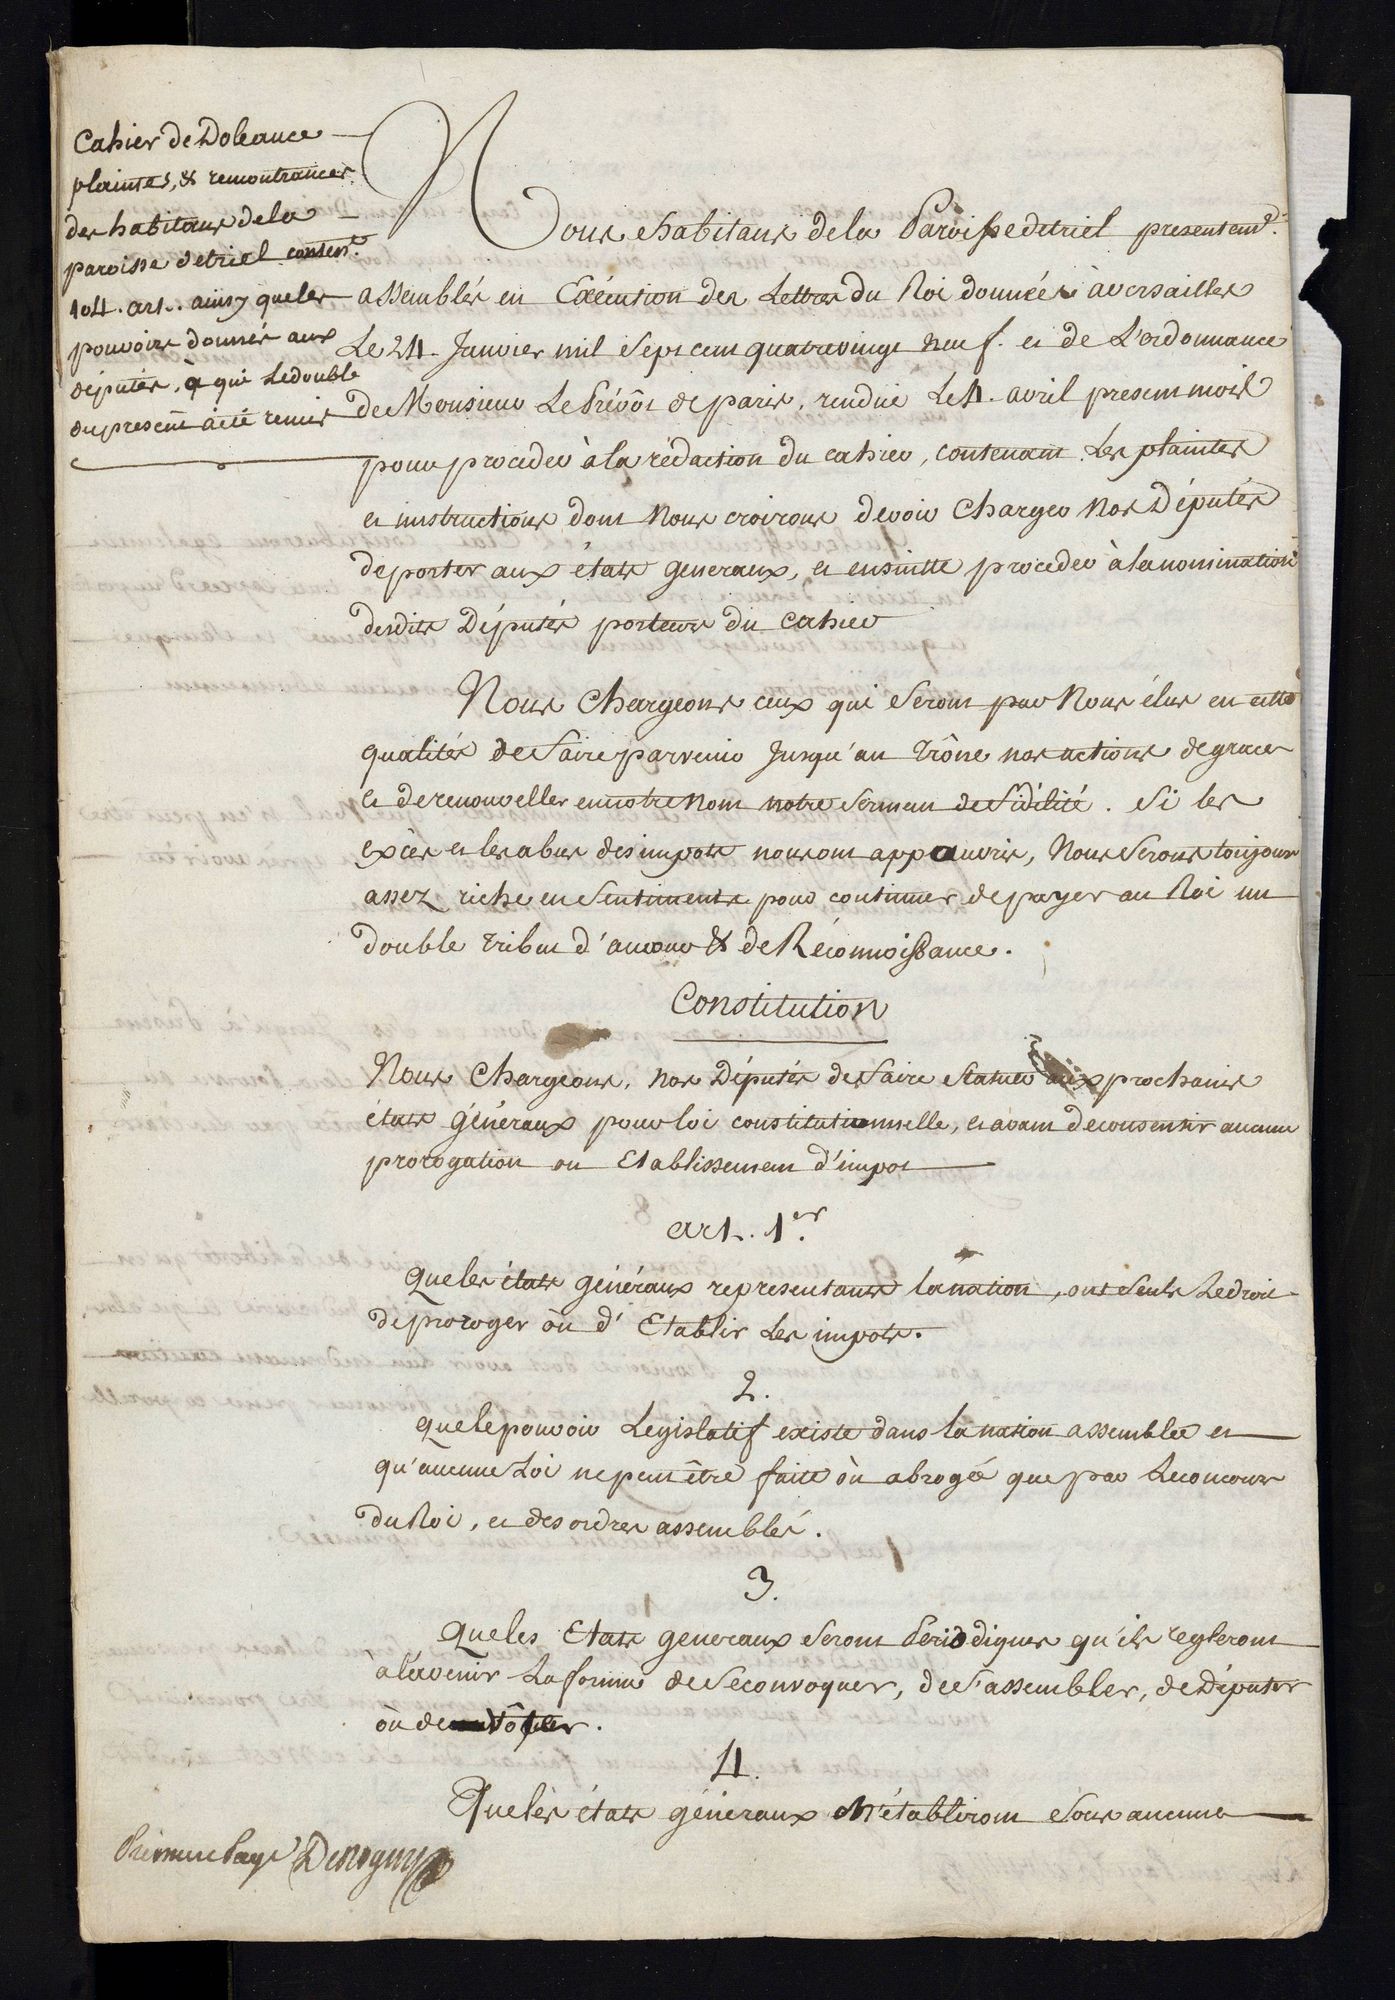 Cahier de Doleance
plaintes, & remontrances
des habitans de la
paroisse de triel conten.t
104. art.. ainsy que les
pouvoirs donnés aux
députés, à qui Le double
du present à été remis
Nous habitans de la Paroisse de triel presentem.t
assemblés en Exécution des Lettres du Roi données à versailles
Le 24. Janvier mil sept cent quatre vingt neuf. et de L'ordonnance
de Monsieur Le Prévôt de paris, rendüe Le 4. avril present mois
pour proceder à la rédaction du cahier, contenant Les plaintes
et instructions dont Nous croirons devoir Charger Nos Députés
de porter aux états generaux, et ensuitte proceder à la nomination
desdits Députés porteurs du Cahier
Nous Chargeons ceux qui seront par Nous élus en cette
qualités de faire parvenir Jusqu'au Trône nos actions de graces
et de renouveller en notre Nom notre serment de fidélité. Si les
excès et les abus des impots nous ont appauvris, Nous serons toujours
assez riche en sentiments pour continuer de payer au Roi un
double tribut d'amour & de Réconnoissance.
Constitution
Nous Chargeons, nos Députés de faire Statuer aux prochains
états généraux pour loi constitutionnelle, et avant de consentir aucune
prorogation ou Etablissement d'impot
art. 1er
que les états généraux representants la nation, ont seuls Le droit
de proroger où d'Etablir Les impots.
2.
que le pouvoir Legislatif existe dans la nation assemblée et
qu'aucune Loi ne peut être faite où abrogée que par Le concours
du Roi, et des ordres assemblés.
3.
Que les Etats generaux seront Périodiques qu'ils regleront
à l'avenir La forme de se convoquer, de s'assembler, de Députer
où de vôter.
4.
Que les états généraux N'établiront sous aucune
Premiere Page Derogny